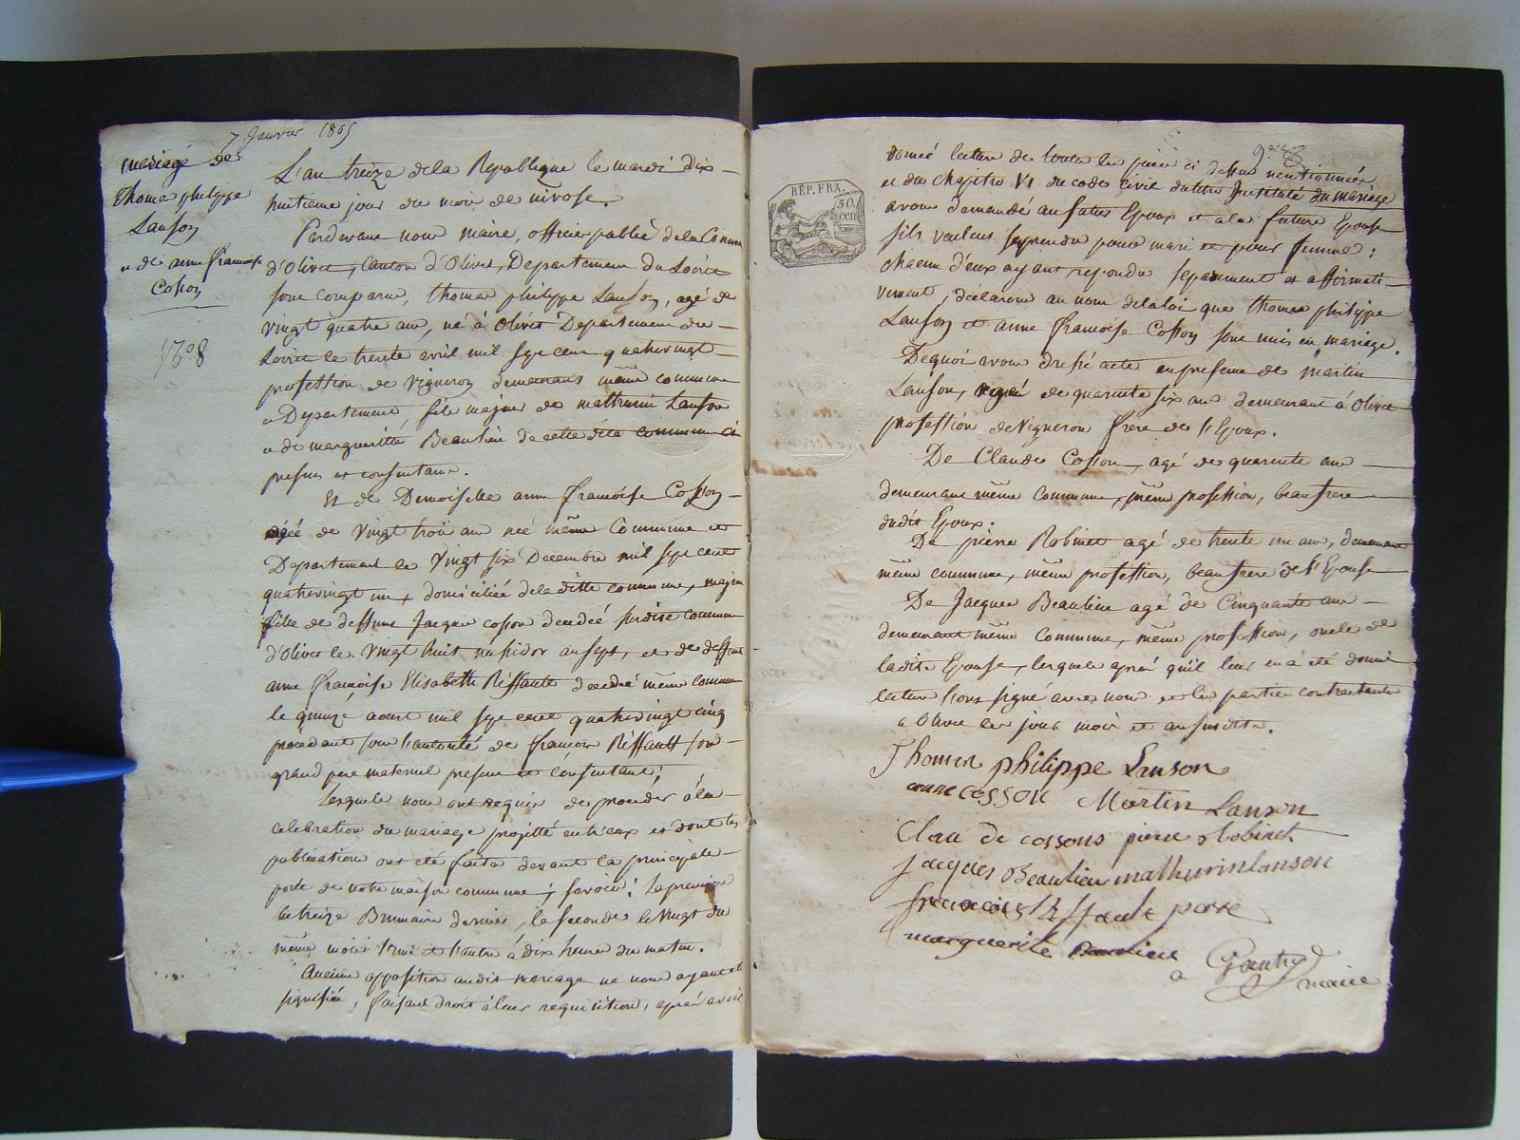 7 Janvier 1805
mariage de
Thomas philippe
Lanson
& de anne françoise
Cosson
L'an treize de la Republique le mardi dix
huitieme jour du mois de nivose.
Pardevant nous maire, officier public de la Commune
d'Olivet, Canton d'Olivet, Departement du Loiret
sont comparus, thomas philippe Lanson, agé de
vingt quatre ans, né à Olivet Departement du
Loiret le trente avril mil sept cent quatrevingt
profession de vigneron demeurant même commune
& Departement, fils majeur de mathurin Lanson
& de margueritte Beaulieu de cette dite commune ci
presens et consentans.
Et de Demoiselle anne françoise Cosson
agée de vingt trois ans née même Commune et
Departement le vingt six Decembre mil sept cent
quatrevingt un, domiciliée de la ditte commune, majeure
fille de deffunt Jacques cosson decedé susdite commune
d'Olivet le vingt huit messidor an sept, et de deffunte
anne françoise Elisabeth Riffault decedée même commune
le quinze aoust mil sept cent quatrevingt cinq
procedant sous l'autorité de françois Riffault son
grand pere maternel present et consentant;
Lesquels nous ont requis de proceder à la
celebration du mariage projetté entr'eux et dont les
publications ont été faites devant la principale
porte de notre maison commune; savoir: la premiere
le treize Brumaire dernier, la seconde le vingt du
même mois l'une et l'autre à dix heures du matin.
Aucune opposition audit mariage ne nous ayant été
signifiée, faisant droit à leur requisition, après avoir
donné lecture de toutes les pieces ci dessus mentionnées
et du chapitre VI du code civil du titre Intitulé du mariage
avons demandé au futur Epoux et à la future Epouse
s'ils veulent se prendre pour mari et pour femme:
chacun d'eux ayant repondu separement et affirmati-
vement, declarons au nom de la loi que thomas philippe
Lanson et anne françoise Cosson sont unis en mariage.
De quoi avons dressé acte en presence de martin
Lanson, agé de quarante six ans demeurant à Olivet
profession de vigneron frere de l'Epoux.
De Claude Cosson, agé de quarante ans
demeurant même commune, même profession, beau frere
dudit Epoux.
De pierre Robinet agé de trente un ans, demeurant
même commune, même profession, beau frere de l'Epouse
De Jacques Beaulieu agé de cinquante ans
demeurant même commune, même profession, oncle de
ladite Epouse, lesquels après qu'il leur en a été donné
lecture l'ont signé avec nous et les parties contractantes
à Olivet les jour mois et an susdits.
REP. FRA.
50
CEN
Thomas philippe Lanson
anne cosson Martin Lanson
Clau de cossons pierre Robinet
jacques Beaulieu mathurin lanson
francois Riffault pere
marguerite Beaulieu
maire